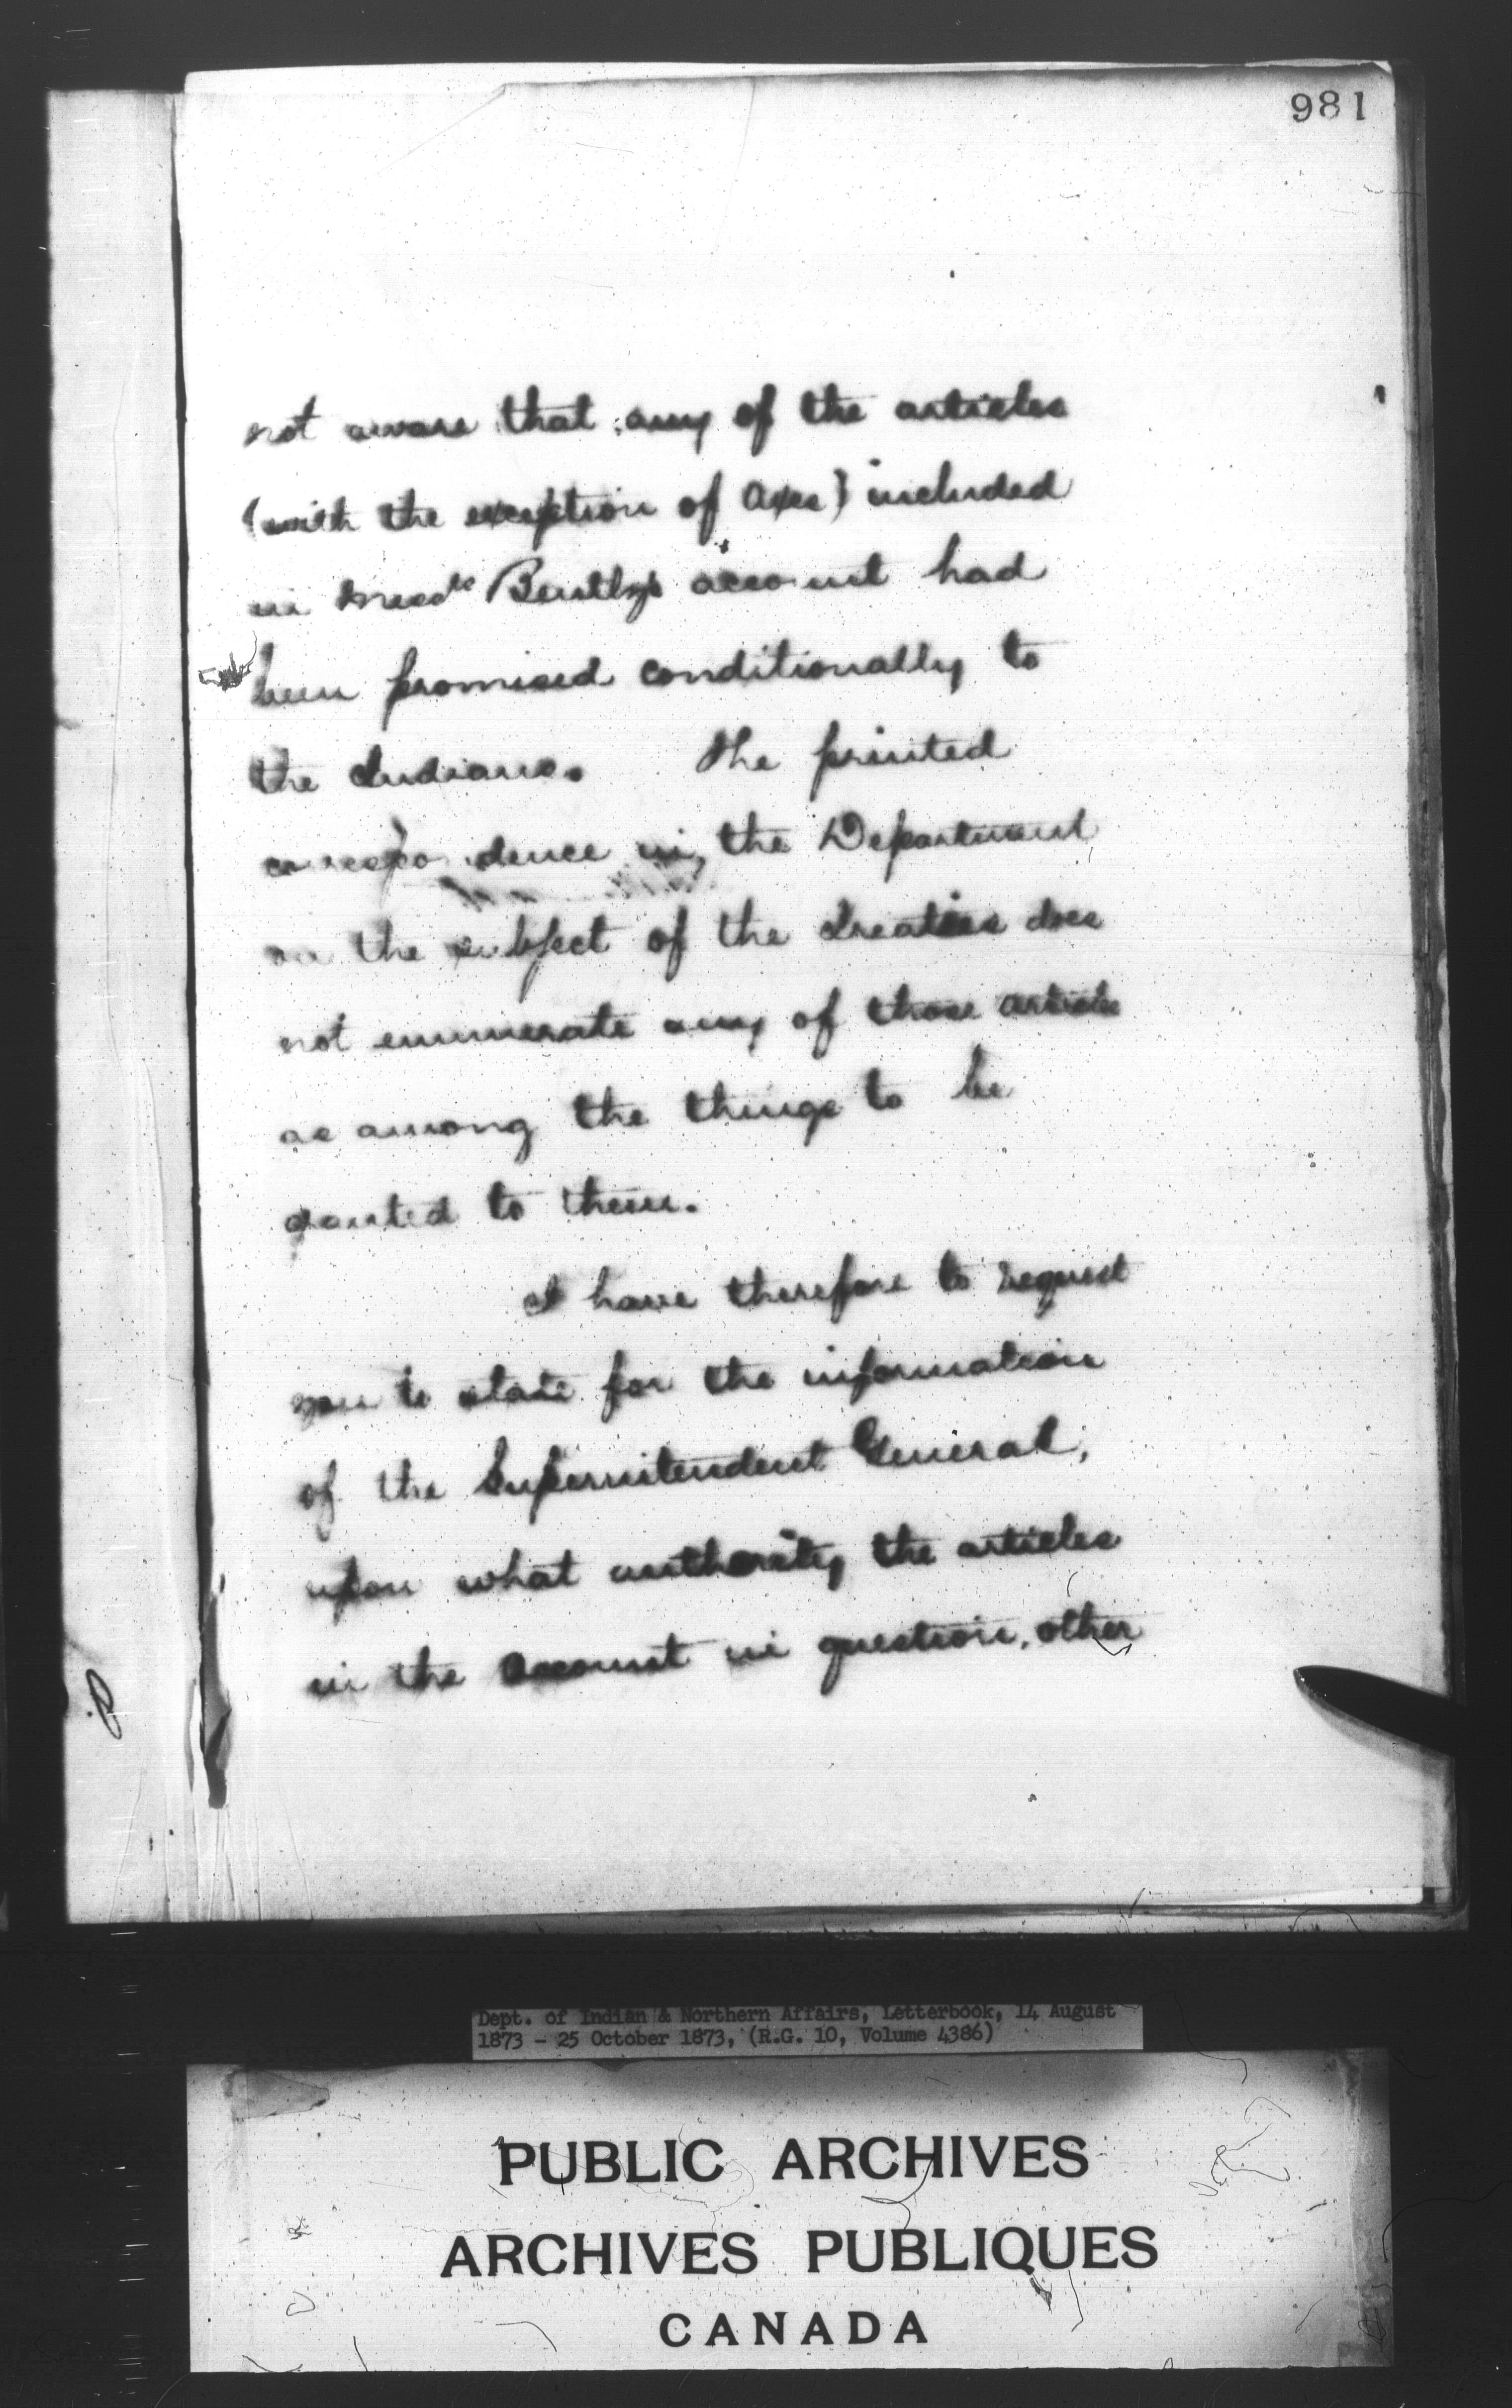 981
not aware that any of the articles
(with the exception of Axes) included
in Bently's account had
been promised conditionally to
the Indians. The printed
correspondence in the Department
on the subject of the treaties does
not enumerate any of those articles
as among the things to be
granted to them.
I have therefore to request
you to state for the information
of the Superintendent General,
upon what authority the articles
in the account in question, other
Dept. of Indian & Northern Affairs, Letterbook, 14 August
1873 - 25 October 1873, (R.G. 10, Volume 4386)
PUBLIC ARCHIVES
ARCHIVES PUBLIQUES
CANADA